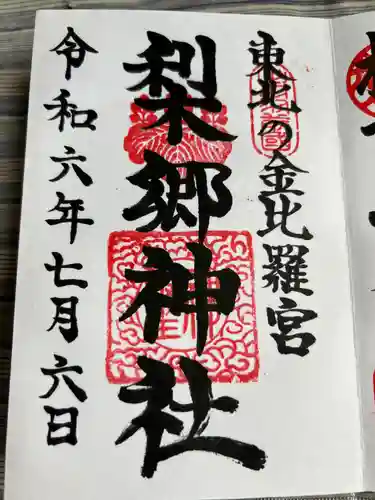 東北の金比羅宮
梨郷神社
令和六年七月六日